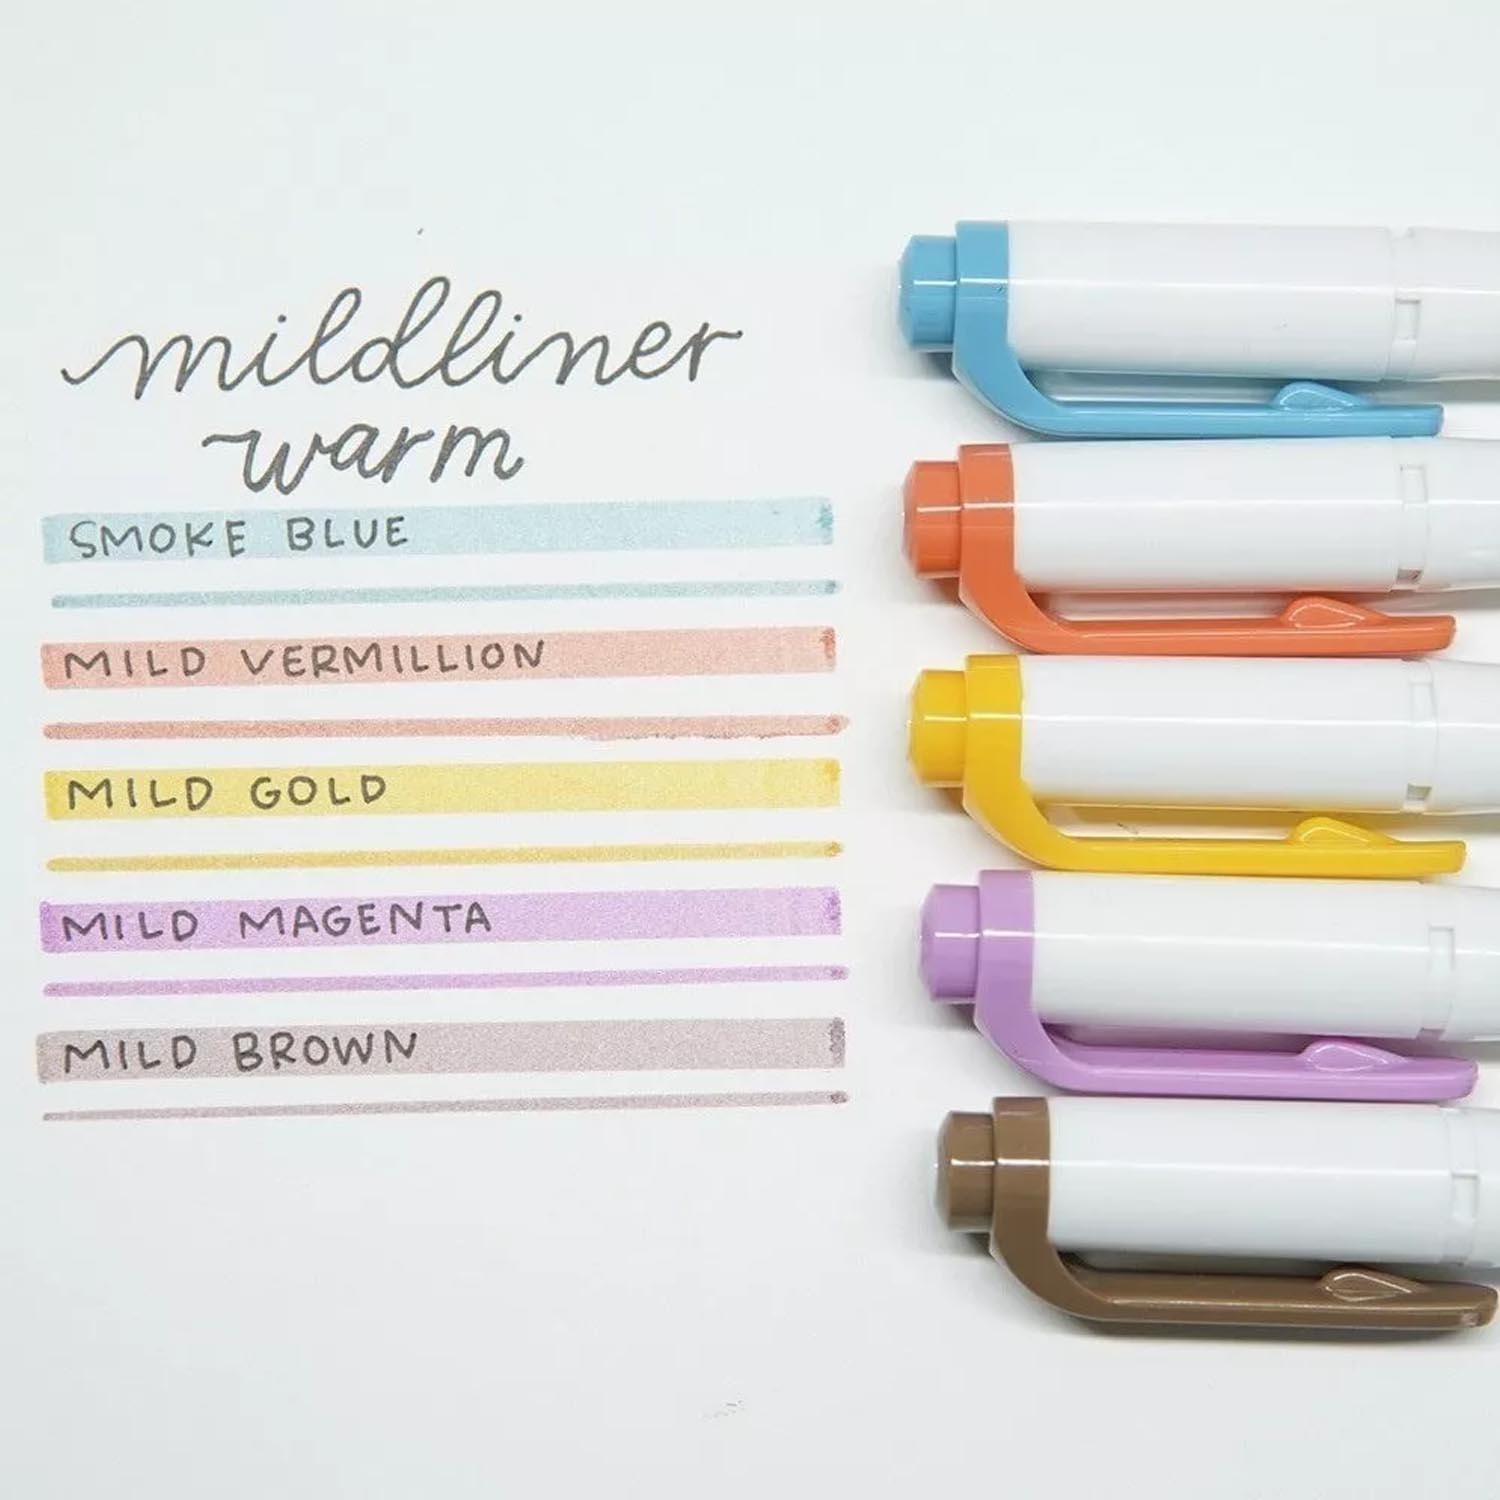 mildliner
warm
SMOKE BLUE
MILD VERMILLION
MILD GOLD
MILD MAGENTA
MILD BROWN